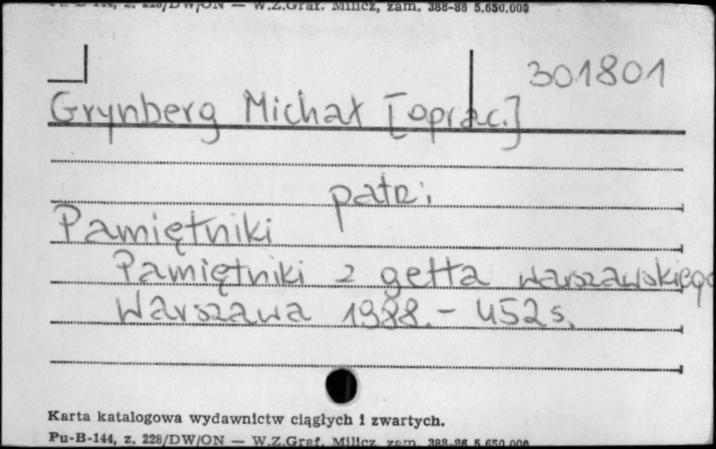 Pu-B-144, z. 228/DW/ON — W.Z.Graf. Milicz, zam. 388-88 5.650.000
301801
Grynberg Michał [oprac.]
patrz:
Pamiętniki
Pamiętniki z getta warszawskiego
Warszawa 1988. - 452 s.
Karta katalogowa wydawnictw ciągłych i zwartych.
Pu-B-144, z. 228/DW/ON — W.Z.Graf. Milicz, zam. 388-88 5.650.000